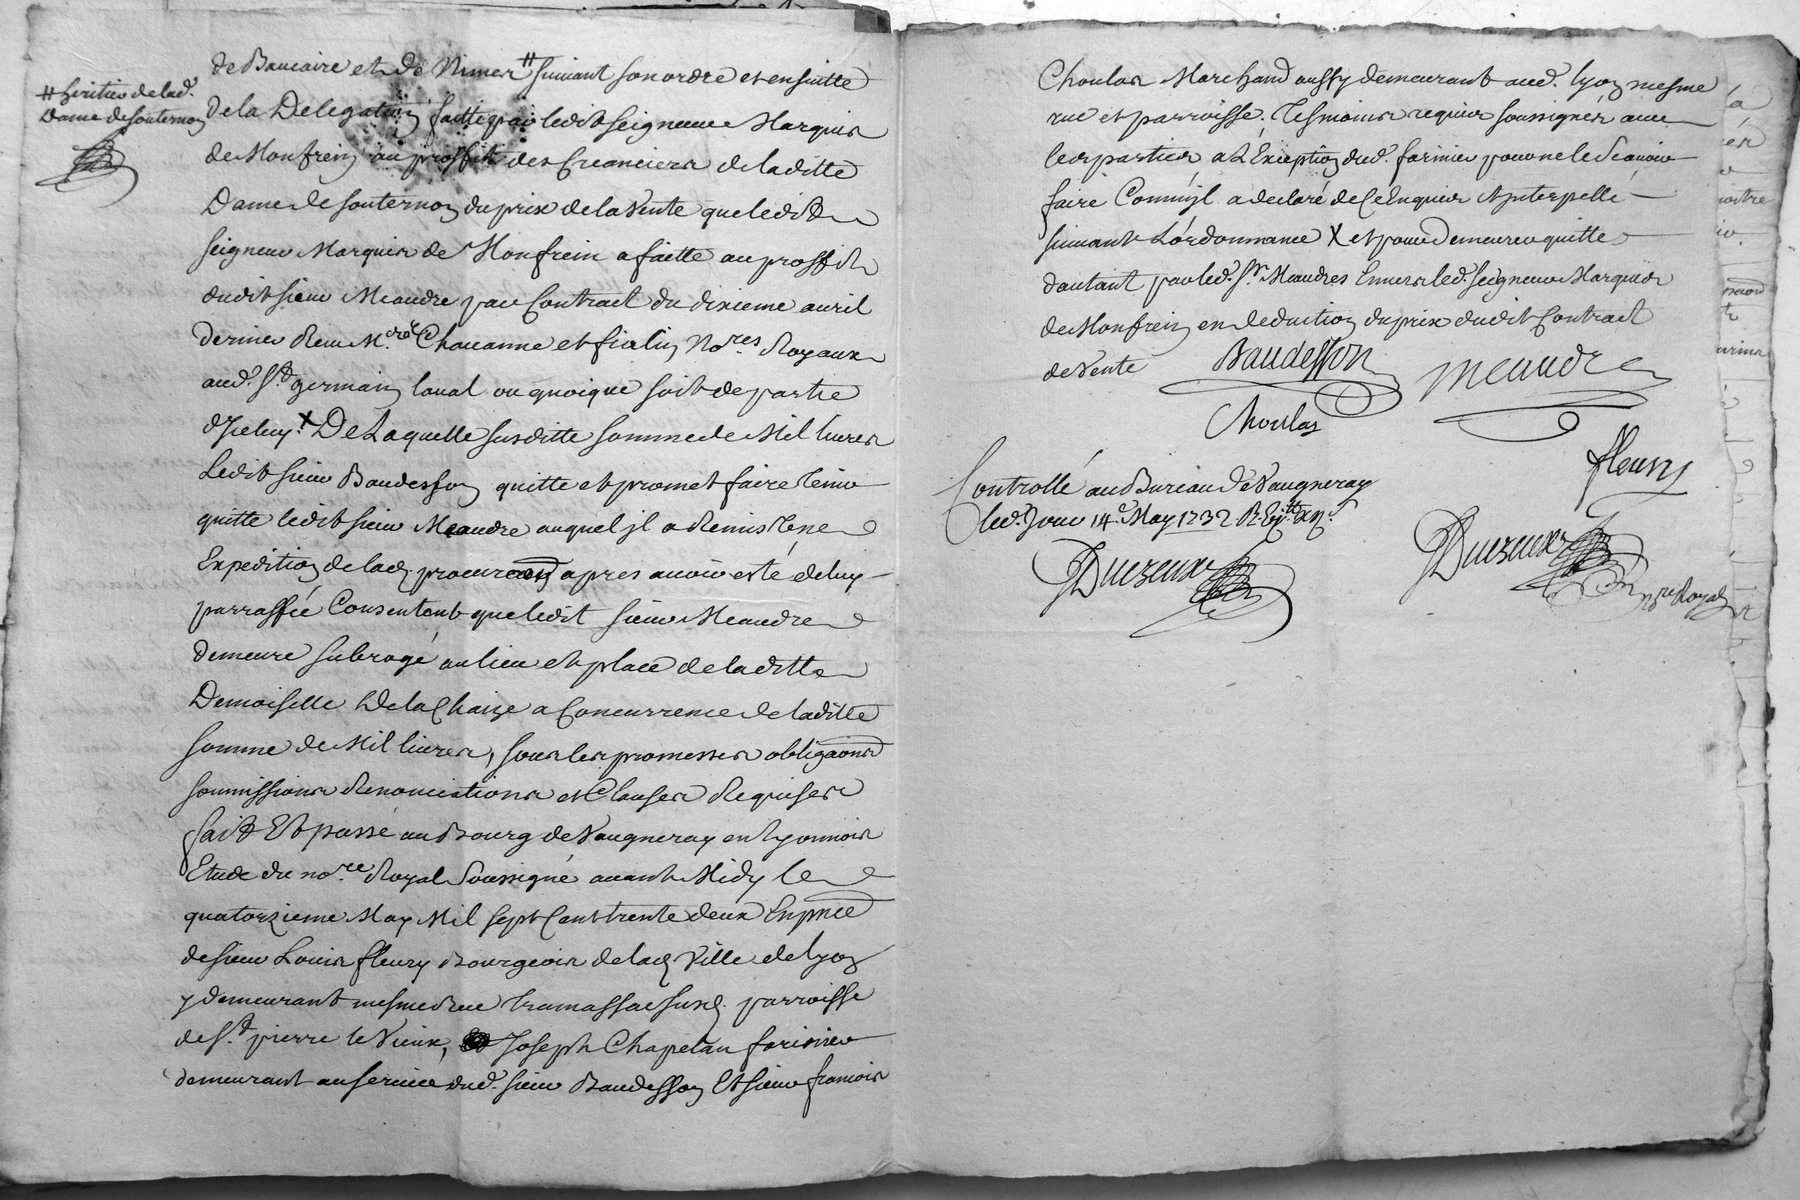 # heritier de lad.
Dame de Souternon
de Baucaire et de Nimes # suivant son ordre et en suitte
de la Delegation faitte par ledit seigneur Marquis
de Monfrein au proffit des Creanciers de laditte
Dame de Souternon du prix de la Vente que ledit
seigneur Marquis de Monfrein a faitte au proffit
dudit sieur Meandre par Contract du dixieme avril
dernier Receu Mres Chavanne et fialin Nores Royaux
aud. St germain laval ou quoique soit de partie
d'Iceluy X De Laquelle susditte somme de Mil livres
Ledit sieur Baudesson quitte et promet faire tenir
quitte ledit sieur Meandre auquel jl a Remis Une
Expedition de lad. procuraon apres avoir esté de luy
parraffée Consentant que ledit sieur Meandre
demeure subrogé au lieu et place de laditte
Demoiselle De la Chaize a Concurrence de laditte
somme de Mil livres, sous les promesses obligaons
soumissions Renonciations et Clauses Requises
fait Et passé au Bourg de Vaugneray en Lyonnois
Etude du nore Royal Soussigné avant Midy le
quatorzieme May Mil sept Cent trente deux En pnce
de sieur Louis fleury Bourgeois de lad. Ville de Lyon
y demeurant mesme Rue tramassac susd. parroisse
de St pierre le Vieux, Joseph Chapelan
demeurant au service dud. sieur Baudesson Et sieur francois
Choulas Marchand aussy demeurant aud. lyon mesme
rue et parroisse. Tesmoins requis soussignés avec
les parties a L'Exception dud. pour ne le Scavoir
faire Comm'jl a declaré de Ce Enquis et Interpellé
suivant L'ordonnance X et pour demeurer quitte
d'autant par led. Sr. Meandres Envers led. seigneur Marquis
de Monfrein en deduction du prix dudit Contract
de Vente Baudesson Meandre
Choulas
fleury
Controllé au Bureau de Vaugneray
led. Jour 14e May 1732 R.
Duezeux
Duezeux
nore Royal